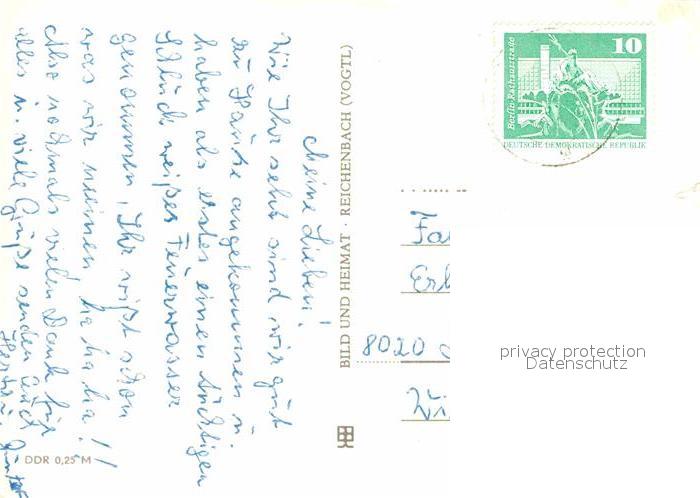 Meine Lieben!
Wie Ihr seht sind wir gut
zu Hause angekommen u.
haben als erstes einen tüchtigen
Schluck weißes Feuerwasser
genommen, Ihr wißt schon
was wir meinen ha ha ha!!
Also nochmals vielen Dank für
alles u. viele Grüße senden Euch
Günter
BILD UND HEIMAT · REICHENBACH (VOGTL)
DDR 0,25 M
10
Berlin-Rathausstraße
DEUTSCHE DEMOKRATISCHE REPUBLIK
Fa
Erl
8020
Wi
privacy protection
Datenschutz